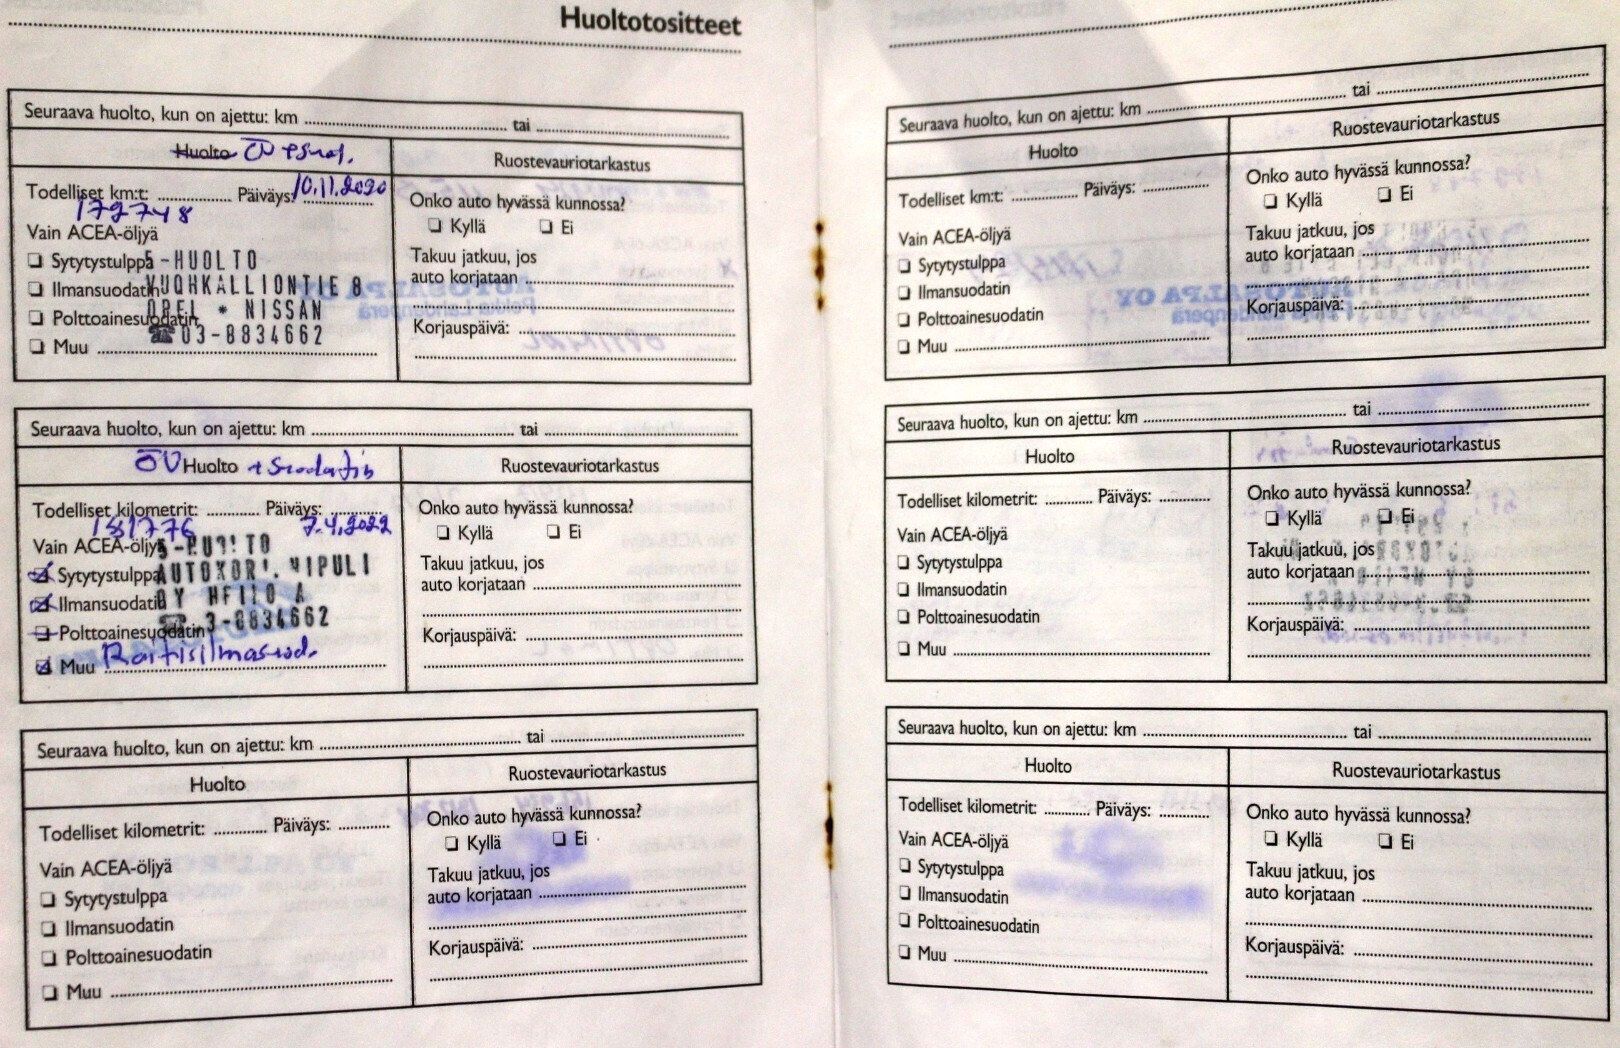 Huoltotositteet
Seuraava huolto, kun on ajettu: km tai
Huolto ÖV + suod.
Ruostevauriotarkastus
Todelliset km:t: Päiväys: 10.11.2020
172748
Vain ACEA-öljyä
Sytytystulppa
Ilmansuodatin
Polttoainesuodatin
Muu
S-HUOLTO
VUOHKALLIONTIE 8
OPEL * NISSAN
☎03-8834662
Onko auto hyvässä kunnossa?
Kyllä Ei
Takuu jatkuu, jos
auto korjataan
Korjauspäivä:
Seuraava huolto, kun on ajettu: km tai
ÖV Huolto + Suodatin
Ruostevauriotarkastus
Todelliset kilometrit: Päiväys:
181776 7.4.2022
Vain ACEA-öljyä
Sytytystulppa
Ilmansuodatin
Polttoainesuodatin
Muu Raitisilmasuod.
AUTOKORJ. VIPULI
3-8834662
Onko auto hyvässä kunnossa?
Kyllä Ei
Takuu jatkuu, jos
auto korjataan
Korjauspäivä:
Seuraava huolto, kun on ajettu: km tai
Huolto
Ruostevauriotarkastus
Todelliset kilometrit: Päiväys:
Vain ACEA-öljyä
Sytytystulppa
Ilmansuodatin
Polttoainesuodatin
Muu
Onko auto hyvässä kunnossa?
Kyllä Ei
Takuu jatkuu, jos
auto korjataan
Korjauspäivä:
Seuraava huolto, kun on ajettu: km tai
Huolto
Ruostevauriotarkastus
Todelliset km:t: Päiväys:
Vain ACEA-öljyä
Sytytystulppa
Ilmansuodatin
Polttoainesuodatin
Muu
Onko auto hyvässä kunnossa?
Kyllä Ei
Takuu jatkuu, jos
auto korjataan
Korjauspäivä:
Seuraava huolto, kun on ajettu: km tai
Huolto
Ruostevauriotarkastus
Todelliset kilometrit: Päiväys:
Vain ACEA-öljyä
Sytytystulppa
Ilmansuodatin
Polttoainesuodatin
Muu
Onko auto hyvässä kunnossa?
Kyllä Ei
Takuu jatkuu, jos
auto korjataan
Korjauspäivä:
Seuraava huolto, kun on ajettu: km tai
Huolto
Ruostevauriotarkastus
Todelliset kilometrit: Päiväys:
Vain ACEA-öljyä
Sytytystulppa
Ilmansuodatin
Polttoainesuodatin
Muu
Onko auto hyvässä kunnossa?
Kyllä Ei
Takuu jatkuu, jos
auto korjataan
Korjauspäivä: